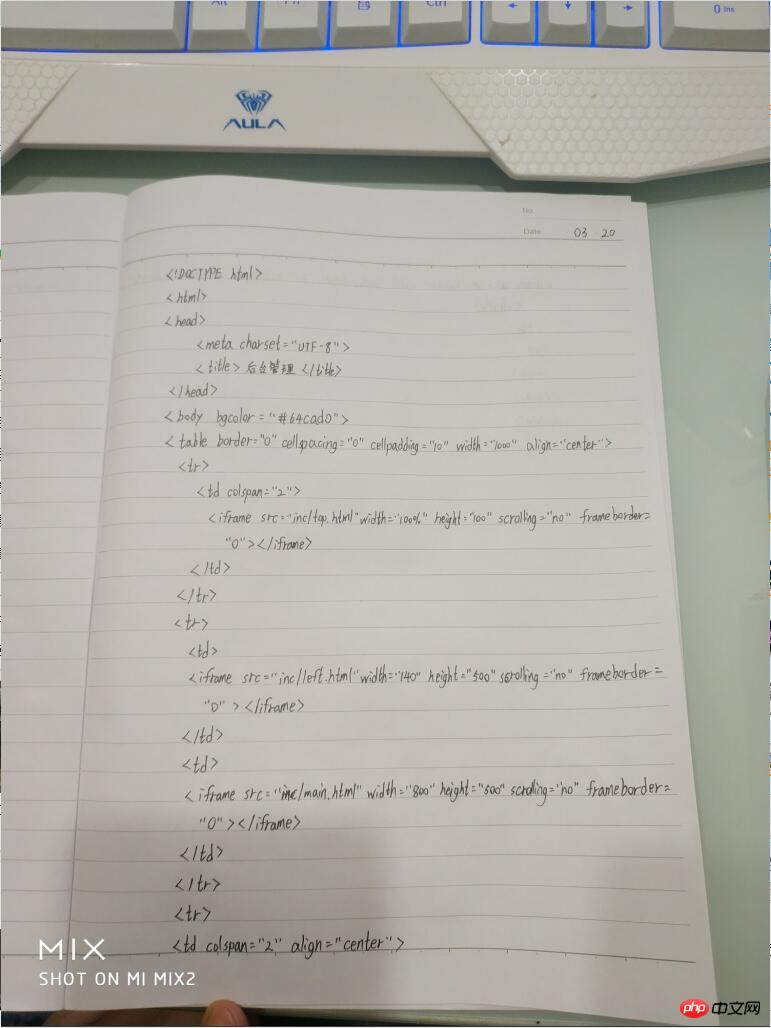 Alt
Fn
Ctrl
0 Ins
AULA
No.
Date. 03 20
<!DOCTYPE html>
<html>
<head>
<meta charset="UTF-8">
<title>后台管理</title>
</head>
<body bgcolor="#64cad0">
<table border="0" cellspacing="0" cellpadding="10" width="1000" align="center">
<tr>
<td colspan="2">
<iframe src="inc/top.html" width="100%" height="100" scrolling="no" frameborder=
"0"></iframe>
</td>
</tr>
<tr>
<td>
<iframe src="inc/left.html" width="140" height="500" scrolling="no" frameborder=
"0"></iframe>
</td>
<td>
<iframe src="inc/main.html" width="800" height="500" scrolling="no" frameborder=
"0"></iframe>
</td>
</tr>
<tr>
<td colspan="2" align="center">
MIX
SHOT ON MI MIX2
php 中文网